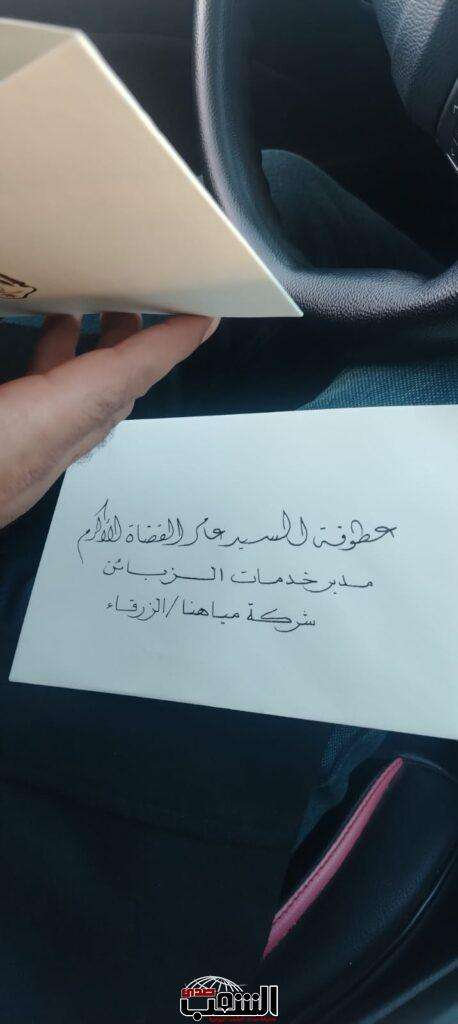 عطوفة السيد عامر القضاة الأكرم
مدير خدمات الزبائن
شركة مياهنا/الزرقاء
صدى
الشعب